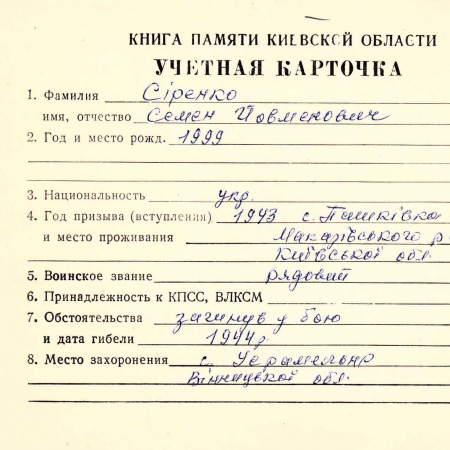 КНИГА ПАМЯТИ КИЕВСКОЙ ОБЛАСТИ
УЧЕТНАЯ КАРТОЧКА
1. Фамилия Сіренко
имя, отчество Семен Йовменович
2. Год и место рожд. 1999
3. Национальность укр.
4. Год призыва (вступления) 1943 с. Пашківка
и место проживания Макарівського р
Київської обл.
5. Воинское звание рядовий
6. Принадлежность к КПСС, ВЛКСМ
7. Обстоятельства загинув у бою
и дата гибели 1944р.
8. Место захоронения с.
Вінницької обл.